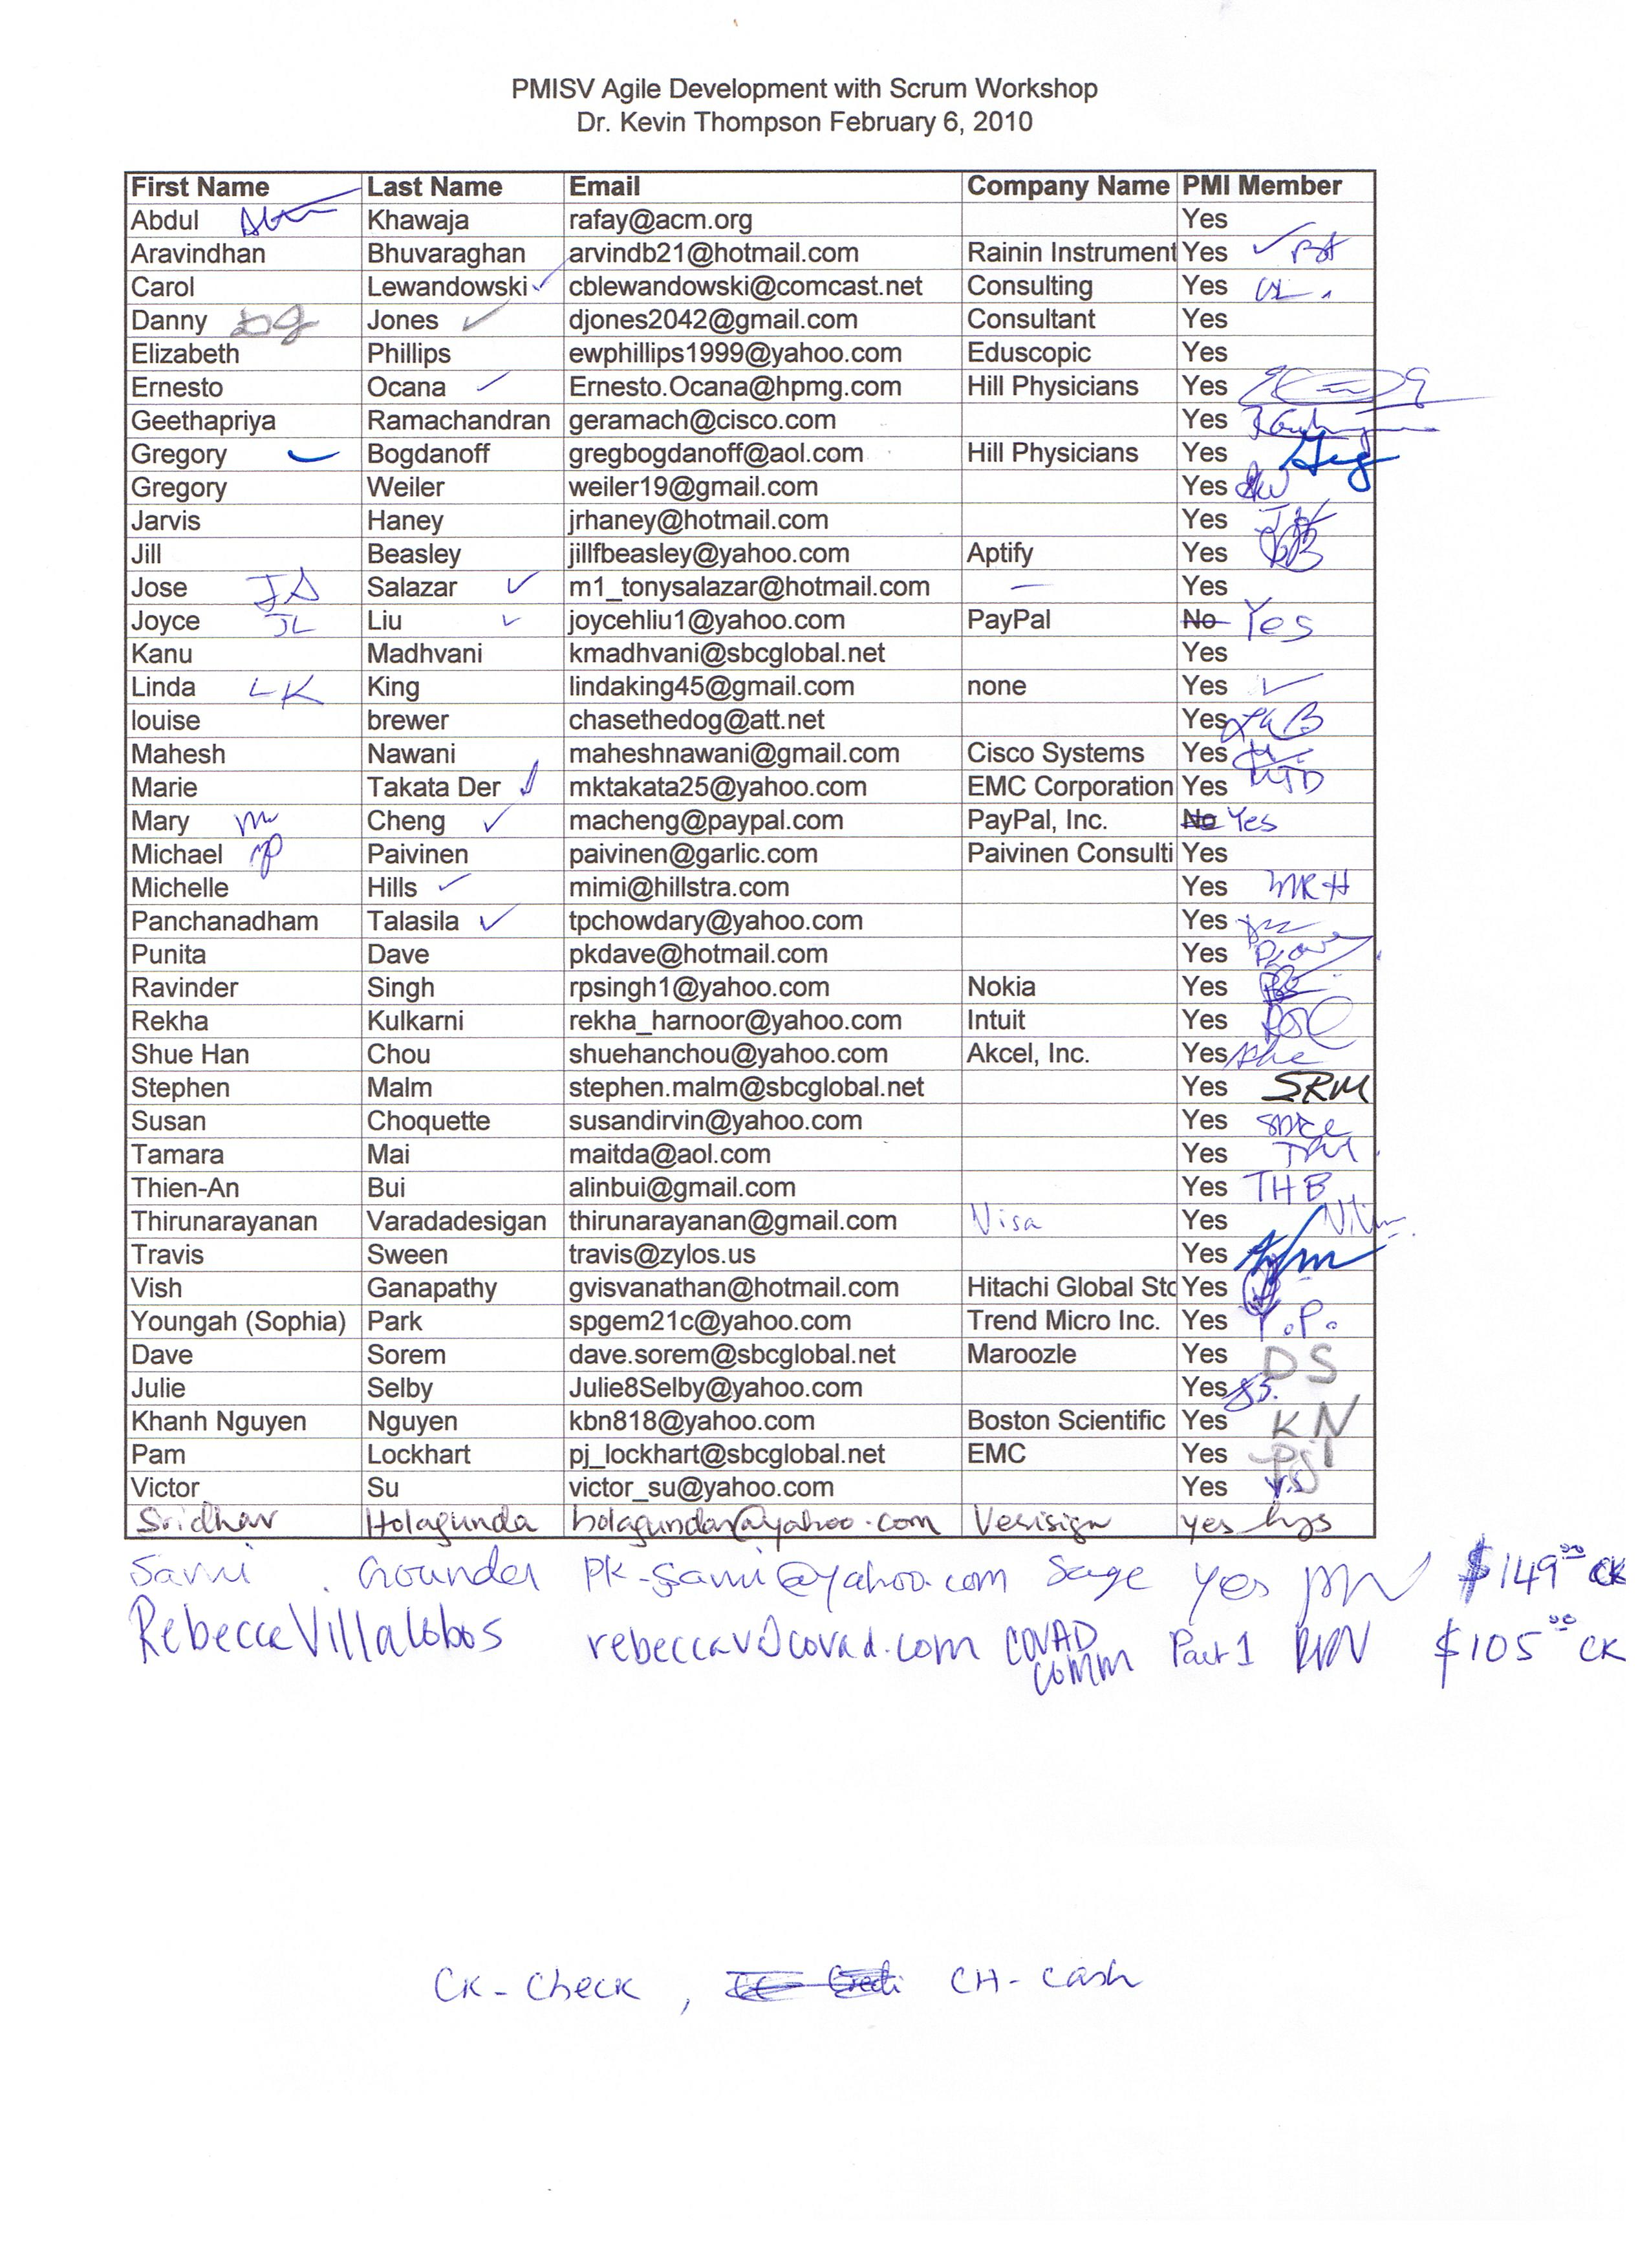 PMISV Agile Development with Scrum Workshop
Dr. Kevin Thompson February 6, 2010
First Name Last Name Email Company Name PMI Member
Abdul Khawaja rafay@acm.org Yes
Aravindhan Bhuvaraghan arvindb21@hotmail.com Rainin Instrument Yes
Carol Lewandowski cblewandowski@comcast.net Consulting Yes CL
Danny DJ Jones djones2042@gmail.com Consultant Yes
Elizabeth Phillips ewphillips1999@yahoo.com Eduscopic Yes
Ernesto Ocana Ernesto.Ocana@hpmg.com Hill Physicians Yes
Geethapriya Ramachandran geramach@cisco.com Yes
Gregory Bogdanoff gregbogdanoff@aol.com Hill Physicians Yes Greg
Gregory Weiler weiler19@gmail.com Yes
Jarvis Haney jrhaney@hotmail.com Yes
Jill Beasley jillfbeasley@yahoo.com Aptify Yes
Jose JS Salazar m1_tonysalazar@hotmail.com Yes
Joyce JL Liu joycehliu1@yahoo.com PayPal No Yes
Kanu Madhvani kmadhvani@sbcglobal.net Yes
Linda LK King lindaking45@gmail.com none Yes
louise brewer chasethedog@att.net Yes
Mahesh Nawani maheshnawani@gmail.com Cisco Systems Yes
Marie Takata Der mktakata25@yahoo.com EMC Corporation Yes MTD
Mary Cheng macheng@paypal.com PayPal, Inc. No Yes
Michael MP Paivinen paivinen@garlic.com Paivinen Consulti Yes
Michelle Hills mimi@hillstra.com Yes MRH
Panchanadham Talasila tpchowdary@yahoo.com Yes
Punita Dave pkdave@hotmail.com Yes
Ravinder Singh rpsingh1@yahoo.com Nokia Yes
Rekha Kulkarni rekha_harnoor@yahoo.com Intuit Yes
Shue Han Chou shuehanchou@yahoo.com Akcel, Inc. Yes
Stephen Malm stephen.malm@sbcglobal.net Yes SRM
Susan Choquette susandirvin@yahoo.com Yes
Tamara Mai maitda@aol.com Yes
Thien-An Bui alinbui@gmail.com Yes THB
Thirunarayanan Varadadesigan thirunarayanan@gmail.com Visa Yes
Travis Sween travis@zylos.us Yes
Vish Ganapathy gvisvanathan@hotmail.com Hitachi Global Sto Yes
Youngah (Sophia) Park spgem21c@yahoo.com Trend Micro Inc. Yes Y.P.
Dave Sorem dave.sorem@sbcglobal.net Maroozle Yes DS
Julie Selby Julie8Selby@yahoo.com Yes JS.
Khanh Nguyen Nguyen kbn818@yahoo.com Boston Scientific Yes KN
Pam Lockhart pj_lockhart@sbcglobal.net EMC Yes PJL
Victor Su victor_su@yahoo.com Yes V.S
Sridhar Holagunda holagundar@yahoo.com Verisign yes hys
Sami Gounder pk-sami@yahoo.com Sage Yes $149.00 CK
Rebecca Villalobos rebeccav@covad.com COVAD COMM Part 1 $105.00 CK
CK - Check , CH - cash